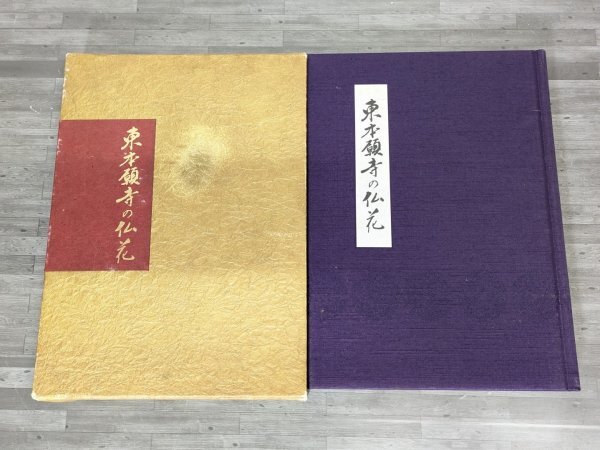 東本願寺の仏花
東本願寺の仏花